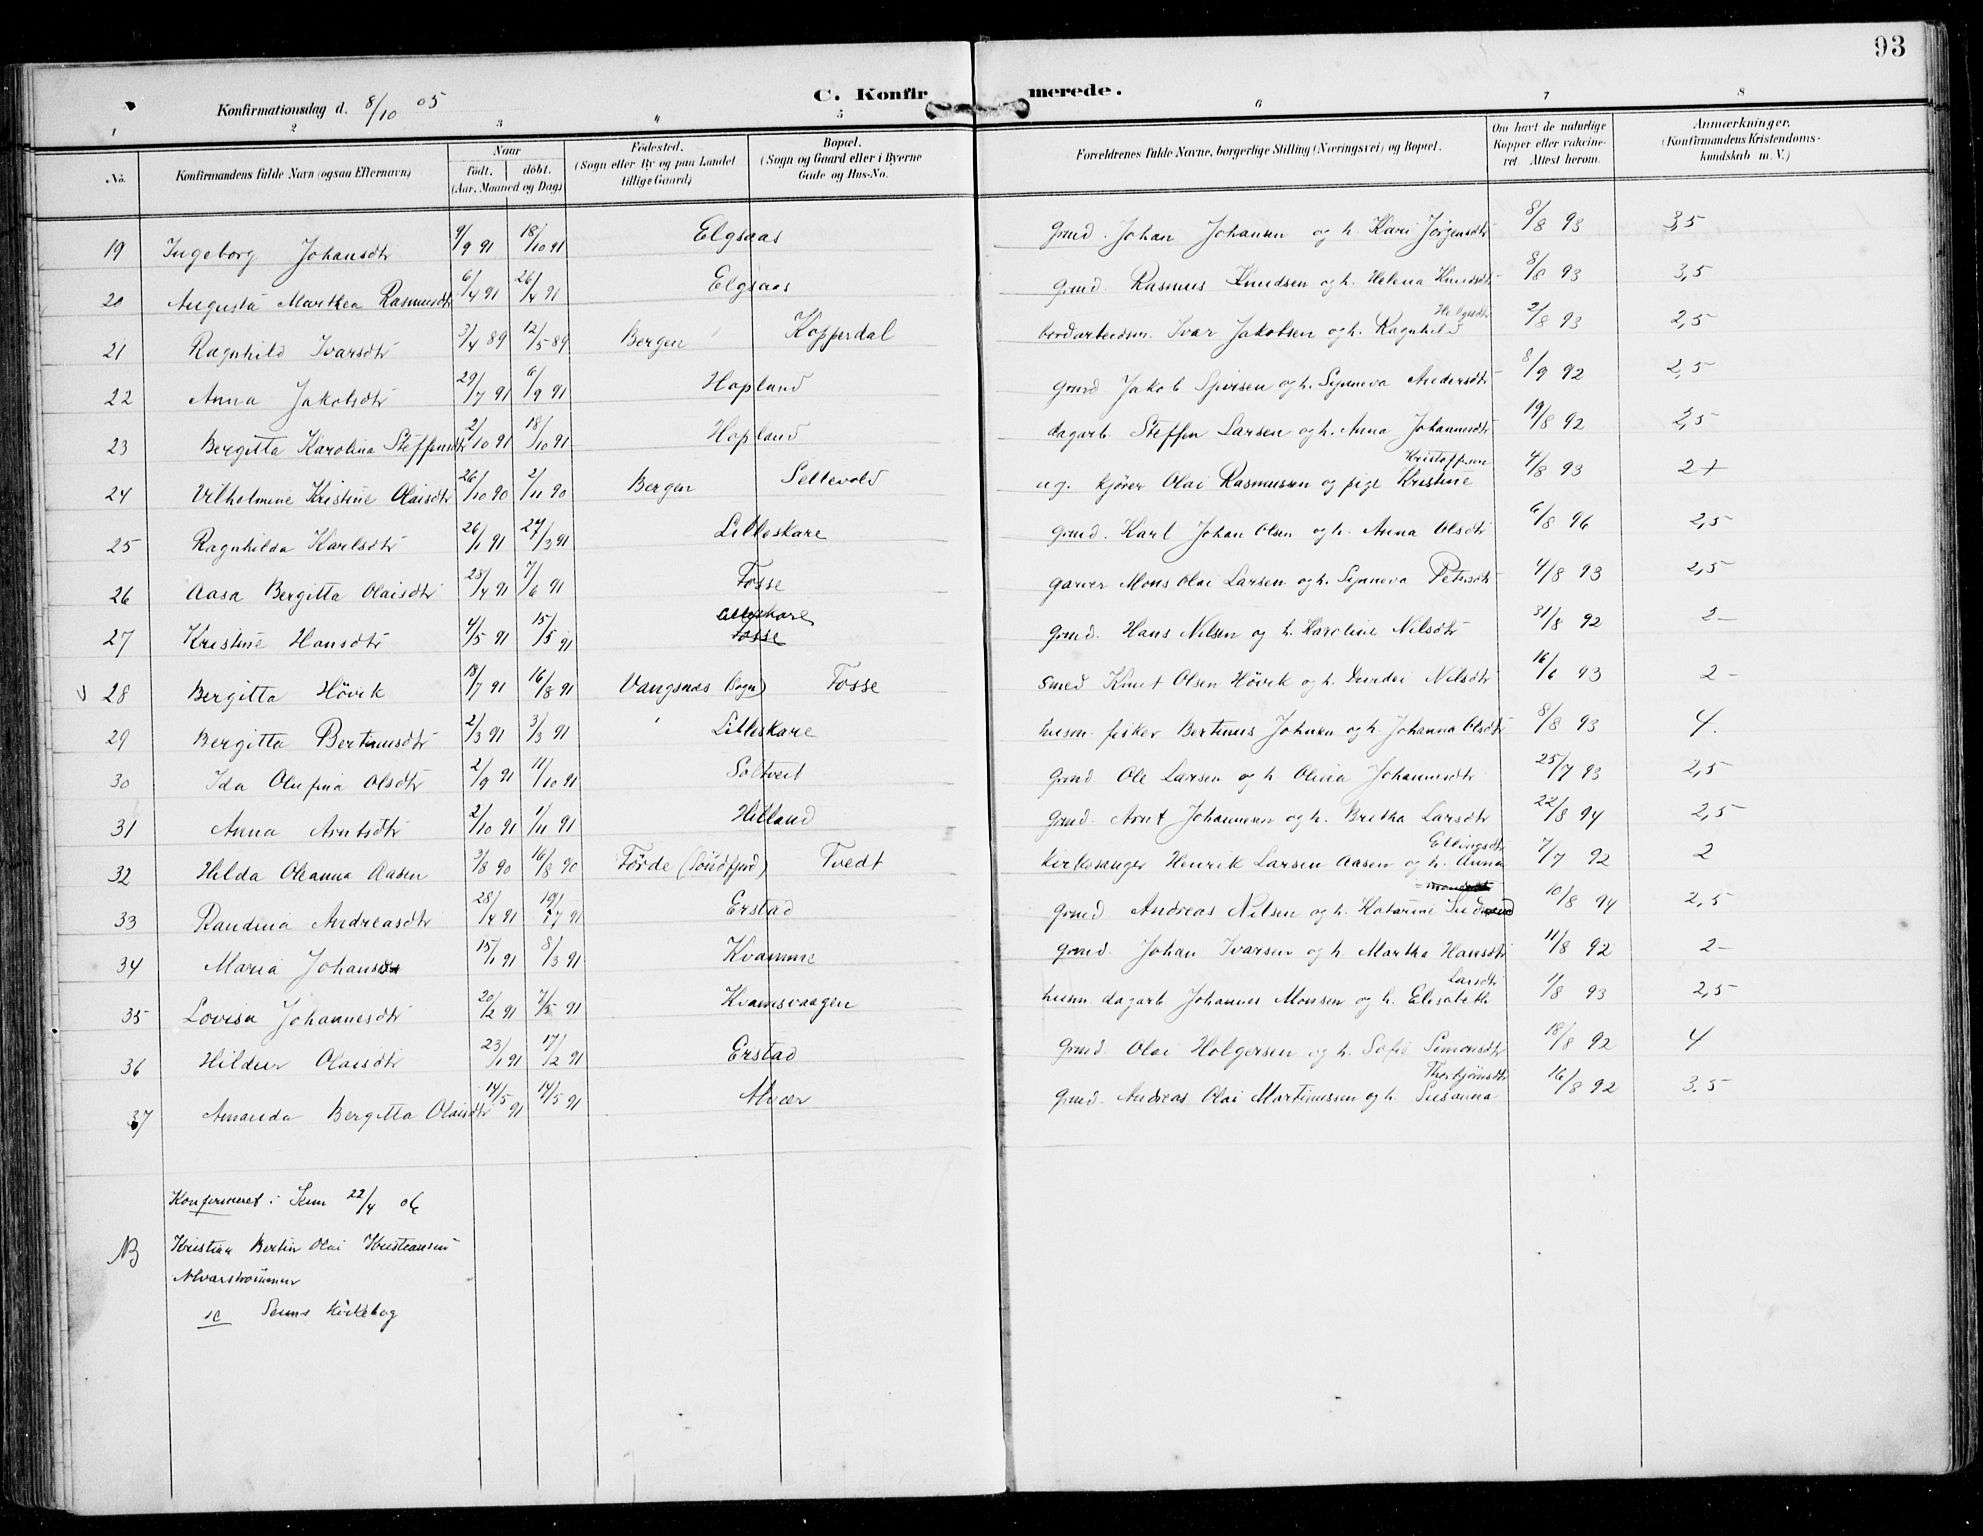 93
C. Konfirmerede.
Konfirmationsdag d. 8/10 05
1 2 3 4 5 6 7 8
No. Konfirmandens fulde Navn (ogsaa Efternavn) Naar født. døbt. (Aar, Maaned og Dag) Fødested. (Sogn eller By og paa Landet tillige Gaard) Bopæl. (Sogn og Gaard eller i Byerne Gade og Hus-No. Forældrenes fulde Navne, borgerlige Stilling (Næringsvei) og Bopæl. Om havt de naturlige Kopper eller vakcineret. Attest herom. Anmærkninger. (Konfirmandens Kristendomskundskab m. V.)
19 Ingeborg Johansdtr 9/9 91 18/10 91 Elgsaas Grmd. Johan Johansen og h. Kari Jørgensdtr 8/8 93 3,5
20 Augusta Marthea Rasmusdtr 6/4 91 26/4 91 Elgsaas Grmd. Rasmus Knudsen og h. Helena Knudsdtr 8/8 93 3,5
21 Ragnhild Ivarsdtr 3/4 89 12/5 89 Bergen Kopperdal bordarbeidsm. Ivar Jakobsen og h. Ragnhild 2/8 93 2,5
22 Anna Jakobsdtr 29/7 91 6/9 91 Hopland Grmd Jakob Sjursen og h. Synneva Andersdtr 8/9 92 2,5
23 Bergitta Karolina Steffensdtr 2/10 91 18/10 91 Hopland dagarb. Steffen Larsen og h. Anna Johannesdtr 19/8 92 2,5
24 Vilhelmine Kristine Olaisdtr 26/10 90 2/11 90 Bergen Sellevold ug. kjører Olai Rasmussen og pige Kristine 4/8 93 2+
25 Ragnhilda Karlsdtr 26/1 91 27/3 91 Lilleskare Grmd. Karl Johan Olsen og h. Anna Olsdtr 6/8 96 2,5
26 Aasa Bergitta Olaisdtr 4 91 7/6 91 Fosse garver Mons Olai Larsen og h. Synneva Petersdtr 4/8 93 2,5
27 Kristine Hansdtr 4/5 91 15/5 91 Fosse Grmd. Hans Nilsen og h. Karoline Nilsdtr 31/8 92 2-
28 Bergitta Høvik 18/7 91 16/8 91 Vangsnæs (Sogn) Fosse Smed Knut Olsen Høvik og h. Nilsdtr 16/6 93 2-
29 Bergitta Bertinusdtr 2/3 91 3/3 91 Lilleskare husm. fisker Bertinus Johnsen og h. Johanna Olsdtr 8/8 93 4.
30 Ida Olufina Olsdtr 2/9 91 11/10 91 Soltveit Grmd. Ole Larsen og h. Olina Johannesdtr 25/7 93 2,5
31 Anna Arntsdtr 2/10 91 1/11 91 Hilland Grmd. Arnt Johannesen og h. Britha Larsdtr 22/8 94 2,5
32 Hilda Ohanna Aasen 3/8 90 16/8 90 Førde (Søndfjord) Tvedt Kirkesanger Henrik Larsen Aasen og h. Anna Ellingsdtr 7/7 92 2
33 Randina Andreasdtr 28/4 91 19/7 91 Erstad Grmd Andreas Nilsen og h. Katarine 10/8 94 2,5
34 Maria Johansdtr 15/1 91 8/3 91 Kvamme Grmd. Johan Ivarsen og h. Martha Hansdtr 11/8 92 2-
35 Lovisa Johannesdtr 20/2 91 7/5 91 Kvamsvaagen husm. dagarb. Johannes Monsen og h. Elisabeth Larsdtr 11/8 93 2,5
36 Hildur Olaisdtr 23/1 91 17/2 91 Erstad Grmd. Olai Holgersen og h. Sofie Simonsdtr 18/8 92 4
37 Amanda Bergitta Olaisdtr 14/5 91 14/5 91 Alvær Grmd. Andreas Olai Martinussen og h. Susanna Thorbjørnsdtr 16/8 92 3,5
Konfirmeret i Seim 22/4 06
NB Kristian Bertin Olai Kristiansen
Alvarstrømmen
se Seims Kirkebog